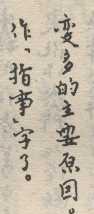 变多的主要原因。
作“指事”字了。